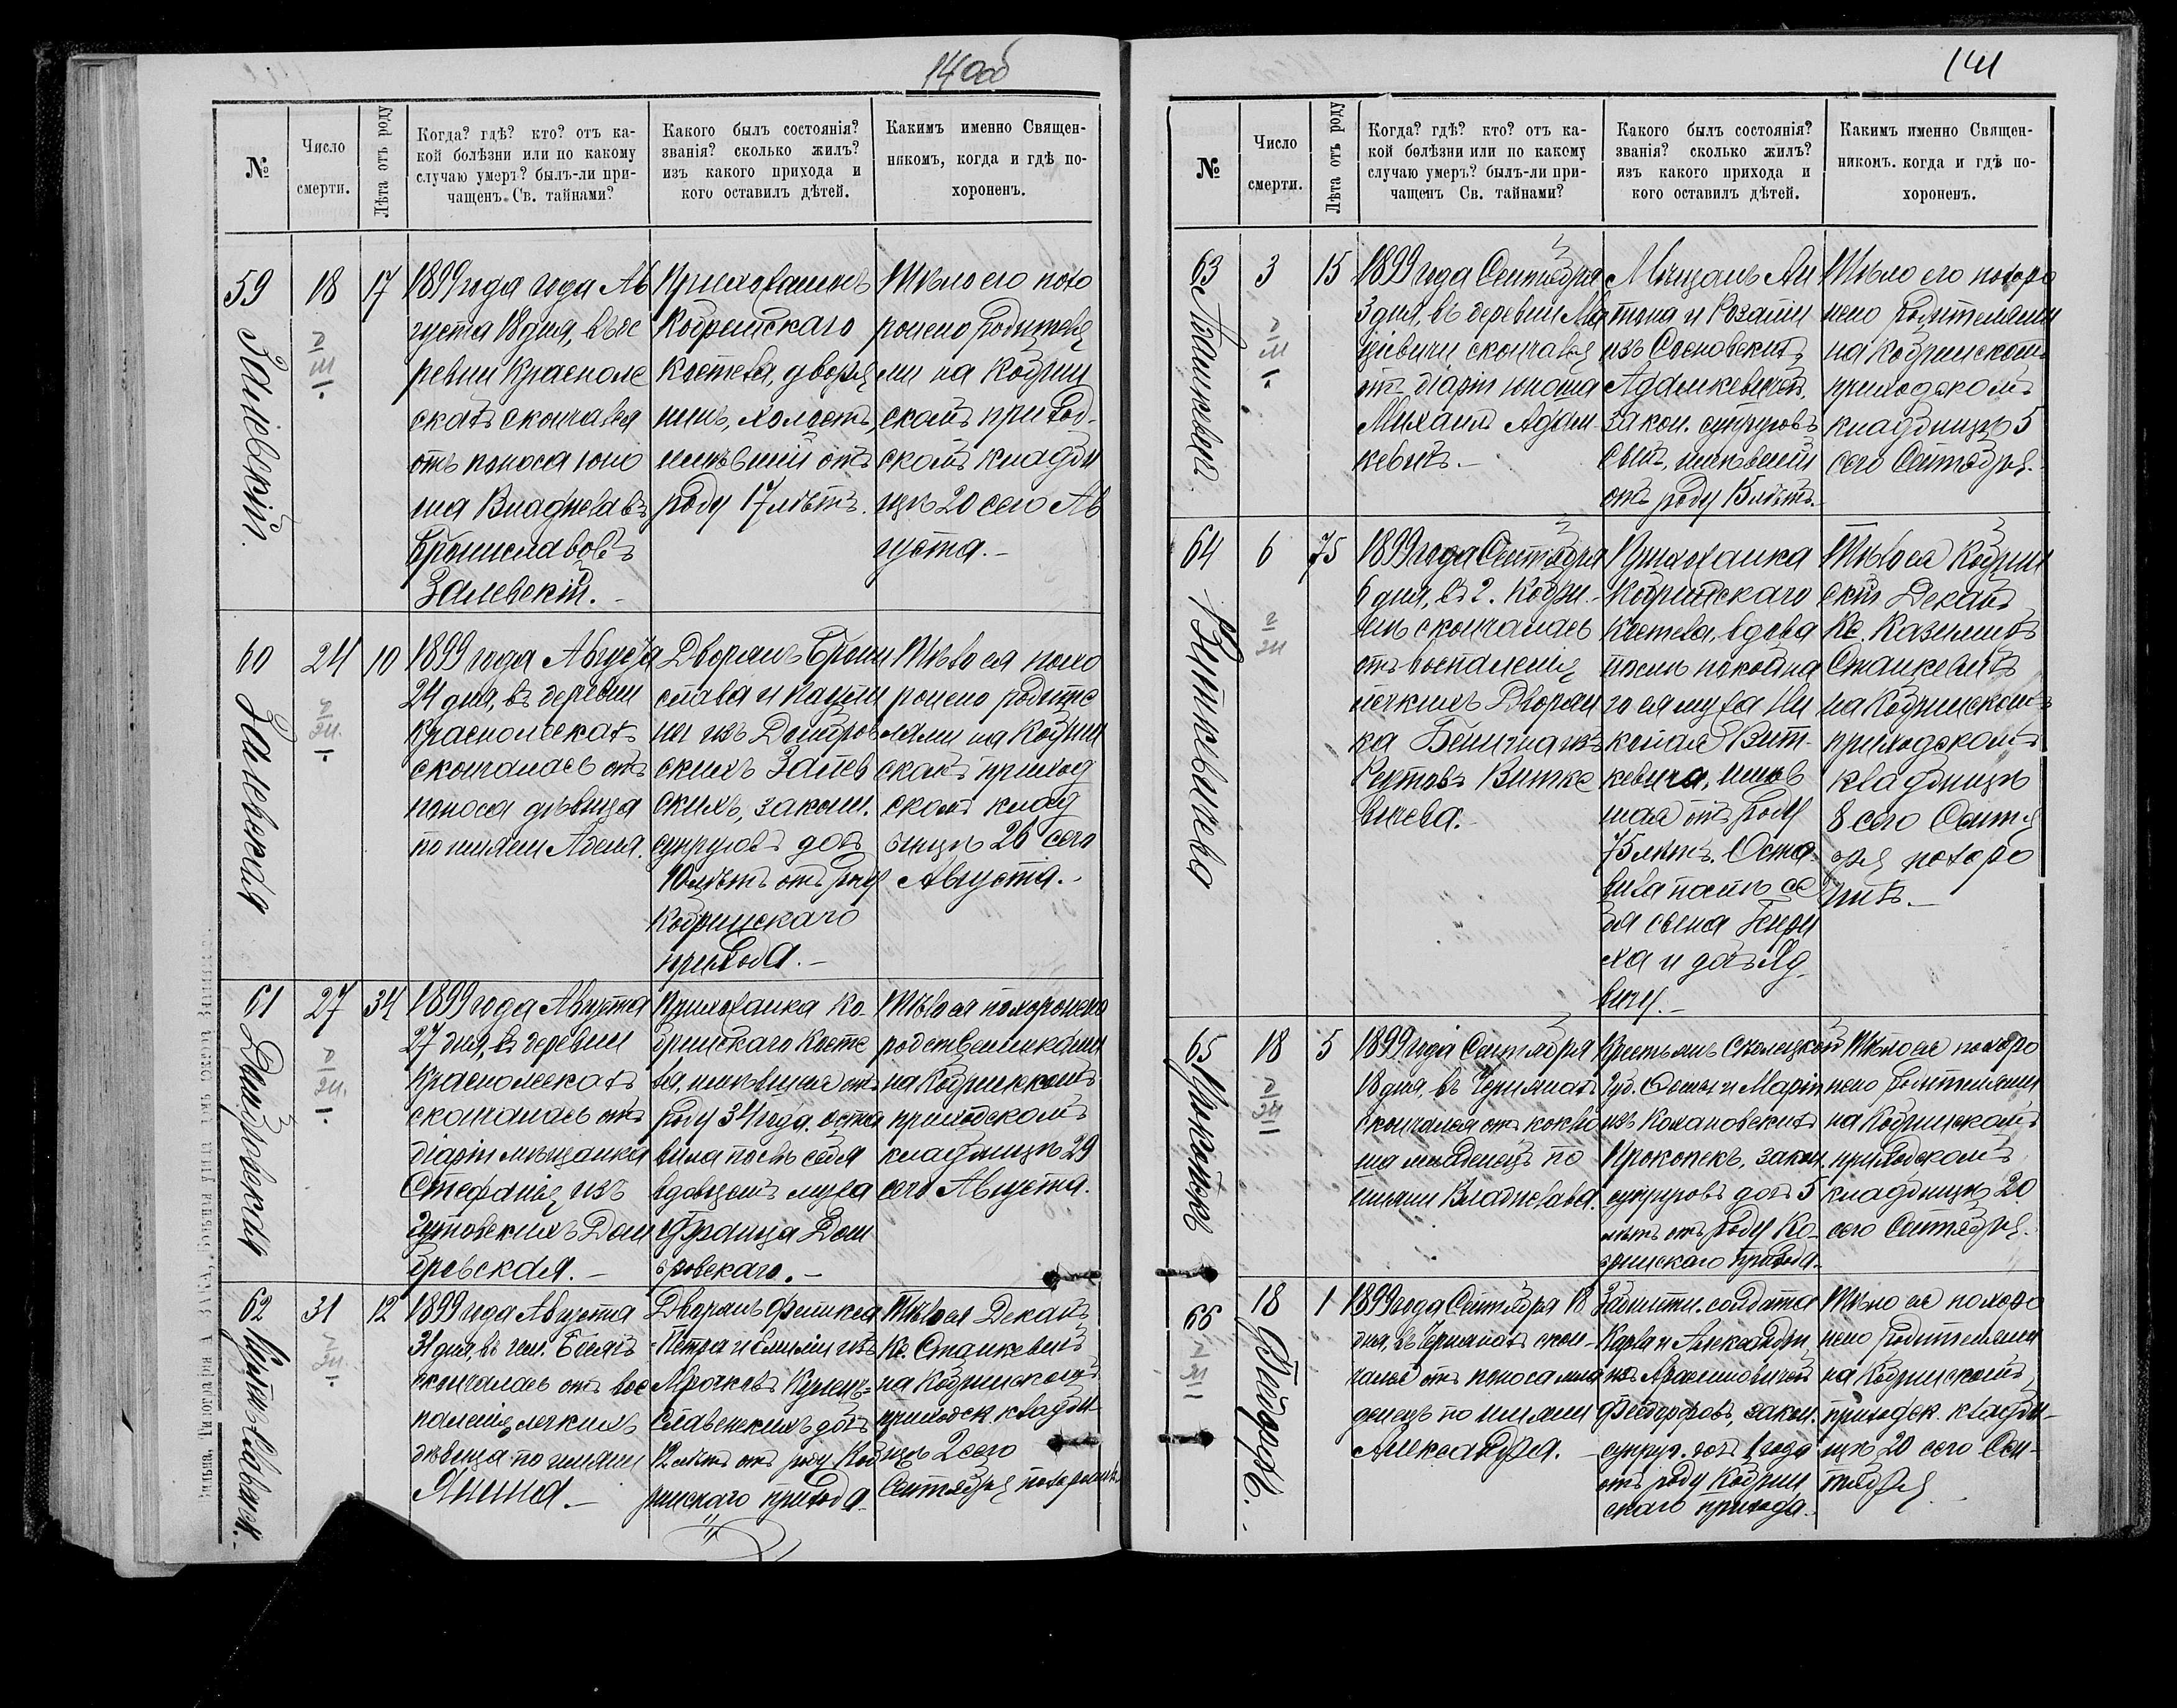 140об
№
Число
смерти.
Лѣта отъ роду
Когда? гдѣ? кто? отъ ка-
кой болѣзни или по какому
случаю умеръ? былъ-ли при-
чащенъ Св. тайнами?
Какого былъ состоянія?
званія? сколько жилъ?
изъ какого прихода и
кого оставилъ дѣтей.
Какимъ именно Священ-
никомъ, когда и гдѣ по-
хороненъ.
59
Залевскій.
18
17
1899 года года Ав
густа 18 дня, въ де
ревни Красноле
скахъ скончался
отъ поноса юно
ша Владиславъ
Брониславовъ
Залевскій.
Прихожанинъ
Кобринскаго
Костела, дворя
нинъ, холостъ,
имѣвшій отъ
роду 17 лѣтъ.
Тѣло его похо
ронено родителя
ми на Кобрин
скомъ приход-
скомъ кладби
щѣ 20 сего Ав
густа.
60
Залевская
24
10
1899 года Августа
24 дня, въ деревни
Краснолескахъ
скончалась отъ
поноса дѣвица
по имени Адель.
Дворянъ Брони
слава и Паули
ны изъ Домбров
скихъ Залев
скихъ, законн.
супруговъ дочь
10 лѣтъ отъ роду
Кобринскаго
прихода.
Тѣло ея похо
ронено родите
лями на Кобрин
скомъ приход
скомъ клад
бищѣ 26 сего
Августа.
61
Домбровская
27
34
1899 года Августа
27 дня, въ деревни
Краснолескахъ
скончалась отъ
діаріи мѣщанка
Стефанія изъ
Домбровская.
Прихожанка Ко-
бринскаго Косте
ла, имѣвшая отъ
роду 34 года. Оста
вила послѣ себя
вдовцомъ мужа
Франца Дом
бровскаго.
Тѣло ея похоронено
родственниками
на Кобринскомъ
приходскомъ
кладбищѣ 29
сего Августа.
62
31
12
1899 года Августа
31 дня, въ
скончалась отъ вос
паленія легкихъ
дѣвица по имени
Янина.
Дворянъ Феликса
Петра и Емиліи изъ
Мрочковъ
дочь
12 лѣтъ отъ роду Коб
ринскаго прихода.
Тѣло ея Деканъ
Кс. Станкевичъ
на Кобринскомъ
приходск. кладби
щѣ 2 сего
Сентября похоронилъ.
141
№
Число
смерти.
Лѣта отъ роду
Когда? гдѣ? кто? отъ ка-
кой болѣзни или по какому
случаю умеръ? былъ-ли при-
чащенъ Св. тайнами?
Какого былъ состоянія?
званія? сколько жилъ?
изъ какого прихода и
кого оставилъ дѣтей.
Какимъ именно Священ-
никомъ. когда и гдѣ по-
хороненъ.
63
Адамкевичъ
3
15
1899 года Сентября
3 дня, въ деревни Ма
цѣвичи скончался
отъ діаріи юноша
Михаилъ Адам-
кевичъ.
Мѣщанъ Ан
тона и Розаліи
изъ Сосновскихъ
Адамкевичей,
закон. супруговъ
сынъ, имѣвшій
отъ роду 15 лѣтъ.
Тѣло его похоро
нено родителями
на Кобринскомъ
приходскомъ
кладбищѣ 5
сего Сентября.
64
Виткевичева
6
75
1899 года Сентября
6 дня, въ г. Кобри-
нѣ скончалась
отъ воспаленія
легкихъ Дворян
ка Бенигна изъ
Виткe
вичева.
Прихожанка
Кобринскаго
Костела, вдова
послѣ покойна
го ея мужа Ни
колая Вит-
кевича, имѣв
шая отъ роду
75 лѣтъ. Оста-
вила послѣ се
бя сына Генри
ха и дочь Яд
вигу.
Тѣло ея Кобрин
скій Деканъ
Кс. Казимиръ
Станкевичъ
на Кобринскомъ
приходскомъ
кладбищѣ
8 сего Сентя
бря похоро
нилъ.
65
Прокопекъ
18
5
1899 года Сентября
18 дня, въ
скончалась отъ коклю
ша младенецъ по
имени Владислава.
Крестьянъ Сѣдлецкой
Губ. Осипа и Маріи
изъ Кохановскихъ
Прокопекъ, закон.
супруговъ дочь 5
лѣтъ отъ роду Ко-
бринскаго прихода.
Тѣло ея похоро
нено родителями
на Кобринскомъ
приходскомъ
кладбищѣ 20
сего Сентября.
66
18
1
1899 года Сентября 18
дня, въ скон-
чалась отъ поноса мла
денецъ по имени
Александра.
солдата
Карла и Александры
изъ
закон.
супруг. дочь 1 года
отъ роду Кобрин
скаго прихода.
Тѣло ея похоро
нено родителями
на Кобринскомъ
приходск. кладби-
щѣ 20 сего Сен-
тября